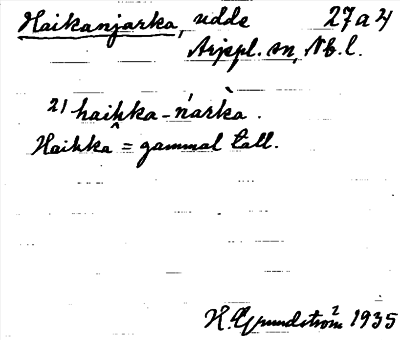 Haikanjarka, udde 27a4
Arjepl. sn, Nb. l.
21 haihka-ńàrka.
Haihka = gammal tall.
H. Grundström 1935